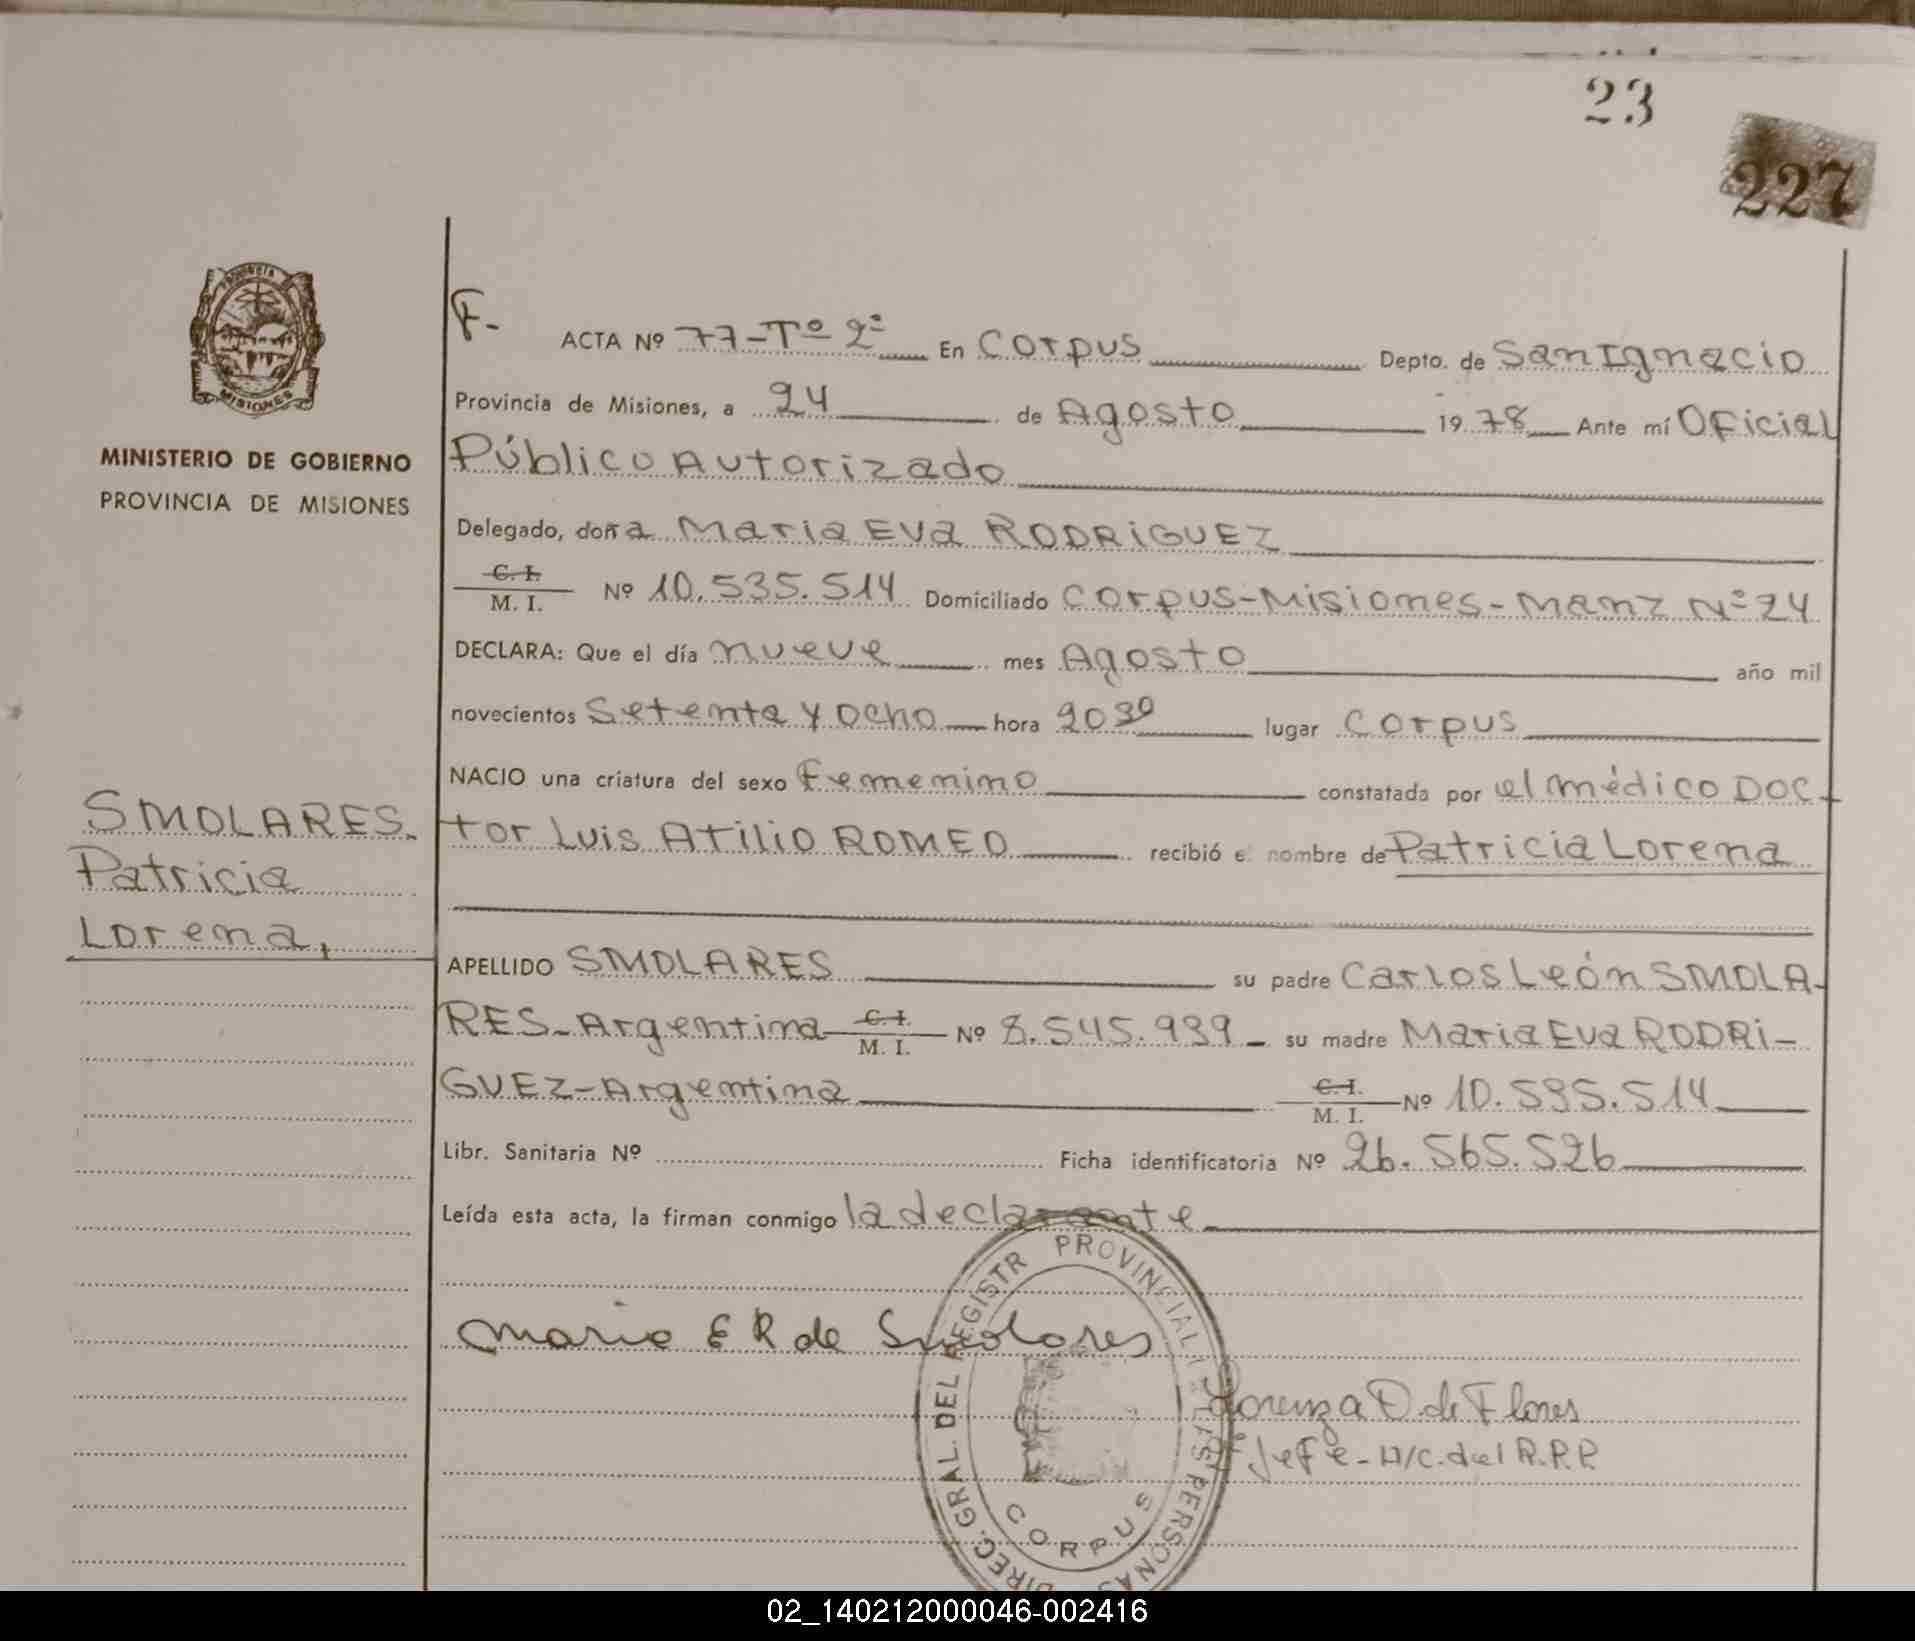 23
227
PROVINCIA
MISIONES
MINISTERIO DE GOBIERNO
PROVINCIA DE MISIONES
SMOLARES.
Patricia
Lorena,
F-
ACTA Nº 77-Tº 2º En Corpus Depto. de San Ignacio
Provincia de Misiones, a 24 de Agosto 1978 Ante mí Oficial
Público Autorizado
Delegado, doña Maria Eva RODRIGUEZ
C. I.
M. I. Nº 10.535.514 Domiciliado Corpus-Misiones-Manz Nº 24
DECLARA: Que el día nueve mes Agosto año mil
novecientos setenta y ocho hora 2030 lugar Corpus
NACIO una criatura del sexo Femenino constatada por el médico Doc-
tor Luis Atilio ROMEO recibió e nombre de Patricia Lorena
APELLIDO SMOLARES su padre Carlos León SMOLA-
RES-Argentina C. I. M. I. Nº 8.545.939 su madre Maria Eva RODRI-
GUEZ-Argentina C. I. M. I. Nº 10.535.514
Libr. Sanitaria Nº Ficha identificatoria Nº 26.565.526
Leída esta acta, la firman conmigo la declarante
Maria E R de Smolares
DIREC. GRAL. DEL REGISTR PROVINCIAL LAS PERSONAS
CORPUS
Lorenza D. de Flores
Jefe-A/C. del R.P.P.
02_140212000046-002416